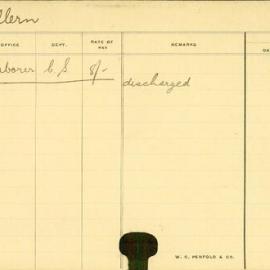 OFFICE DEPT. RATE OF PAY REMARKS DA
C.S 8/- discharged
W. C. PENFOLD & CO.